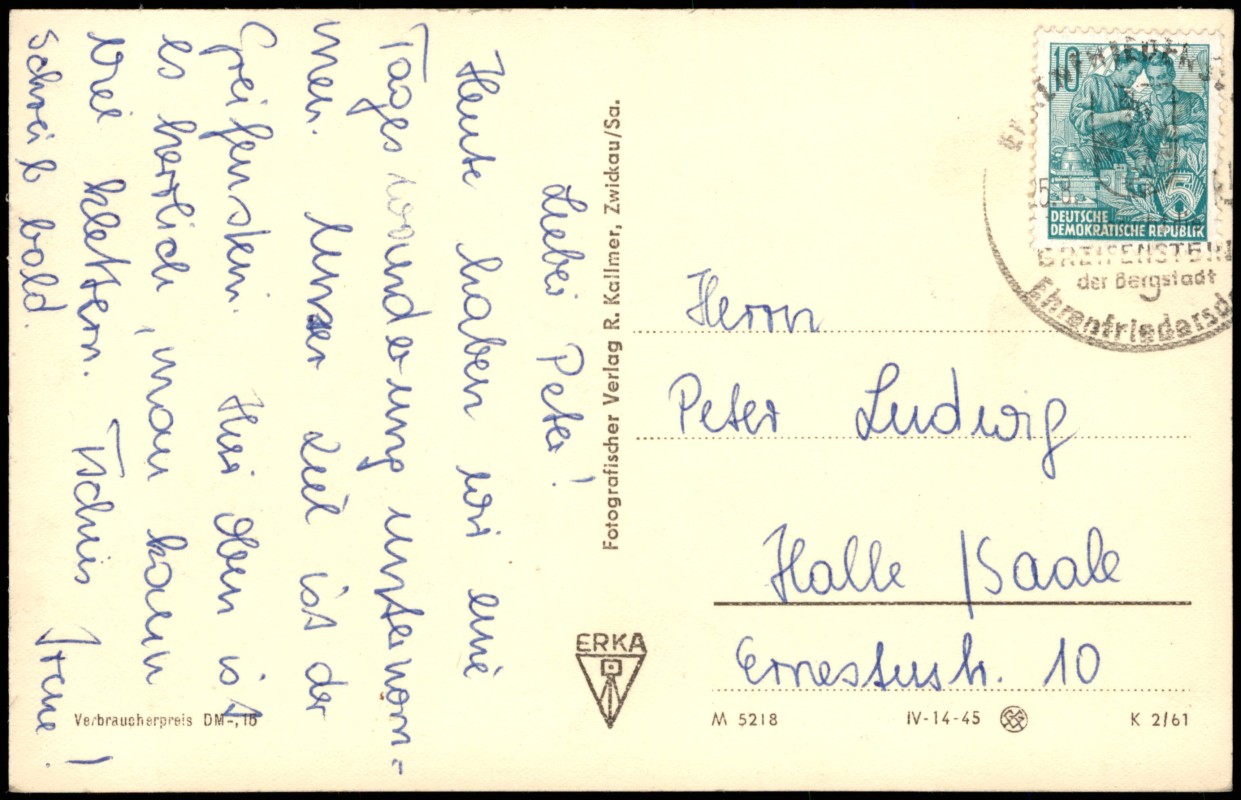 Lieber Peter!
Heute haben wir eine
Tageswanderung unternom-
men. Unser Ziel ist der
Greifenstein. Hier oben ist
es herrlich, man kann
viel klettern. Tschüs
Schreib bald. Irene!
Verbraucherpreis DM-,18
Fotografischer Verlag R. Kallmer, Zwickau/Sa.
ERKA
10
5
DEUTSCHE
DEMOKRATISCHE REPUBLIK
GREIFENSTEIN
der Bergstadt
Ehrenfriedersd
Herrn
Peter Ludwig
Halle /Saale
Ernestusstr. 10
M 5218 IV-14-45 K 2/61